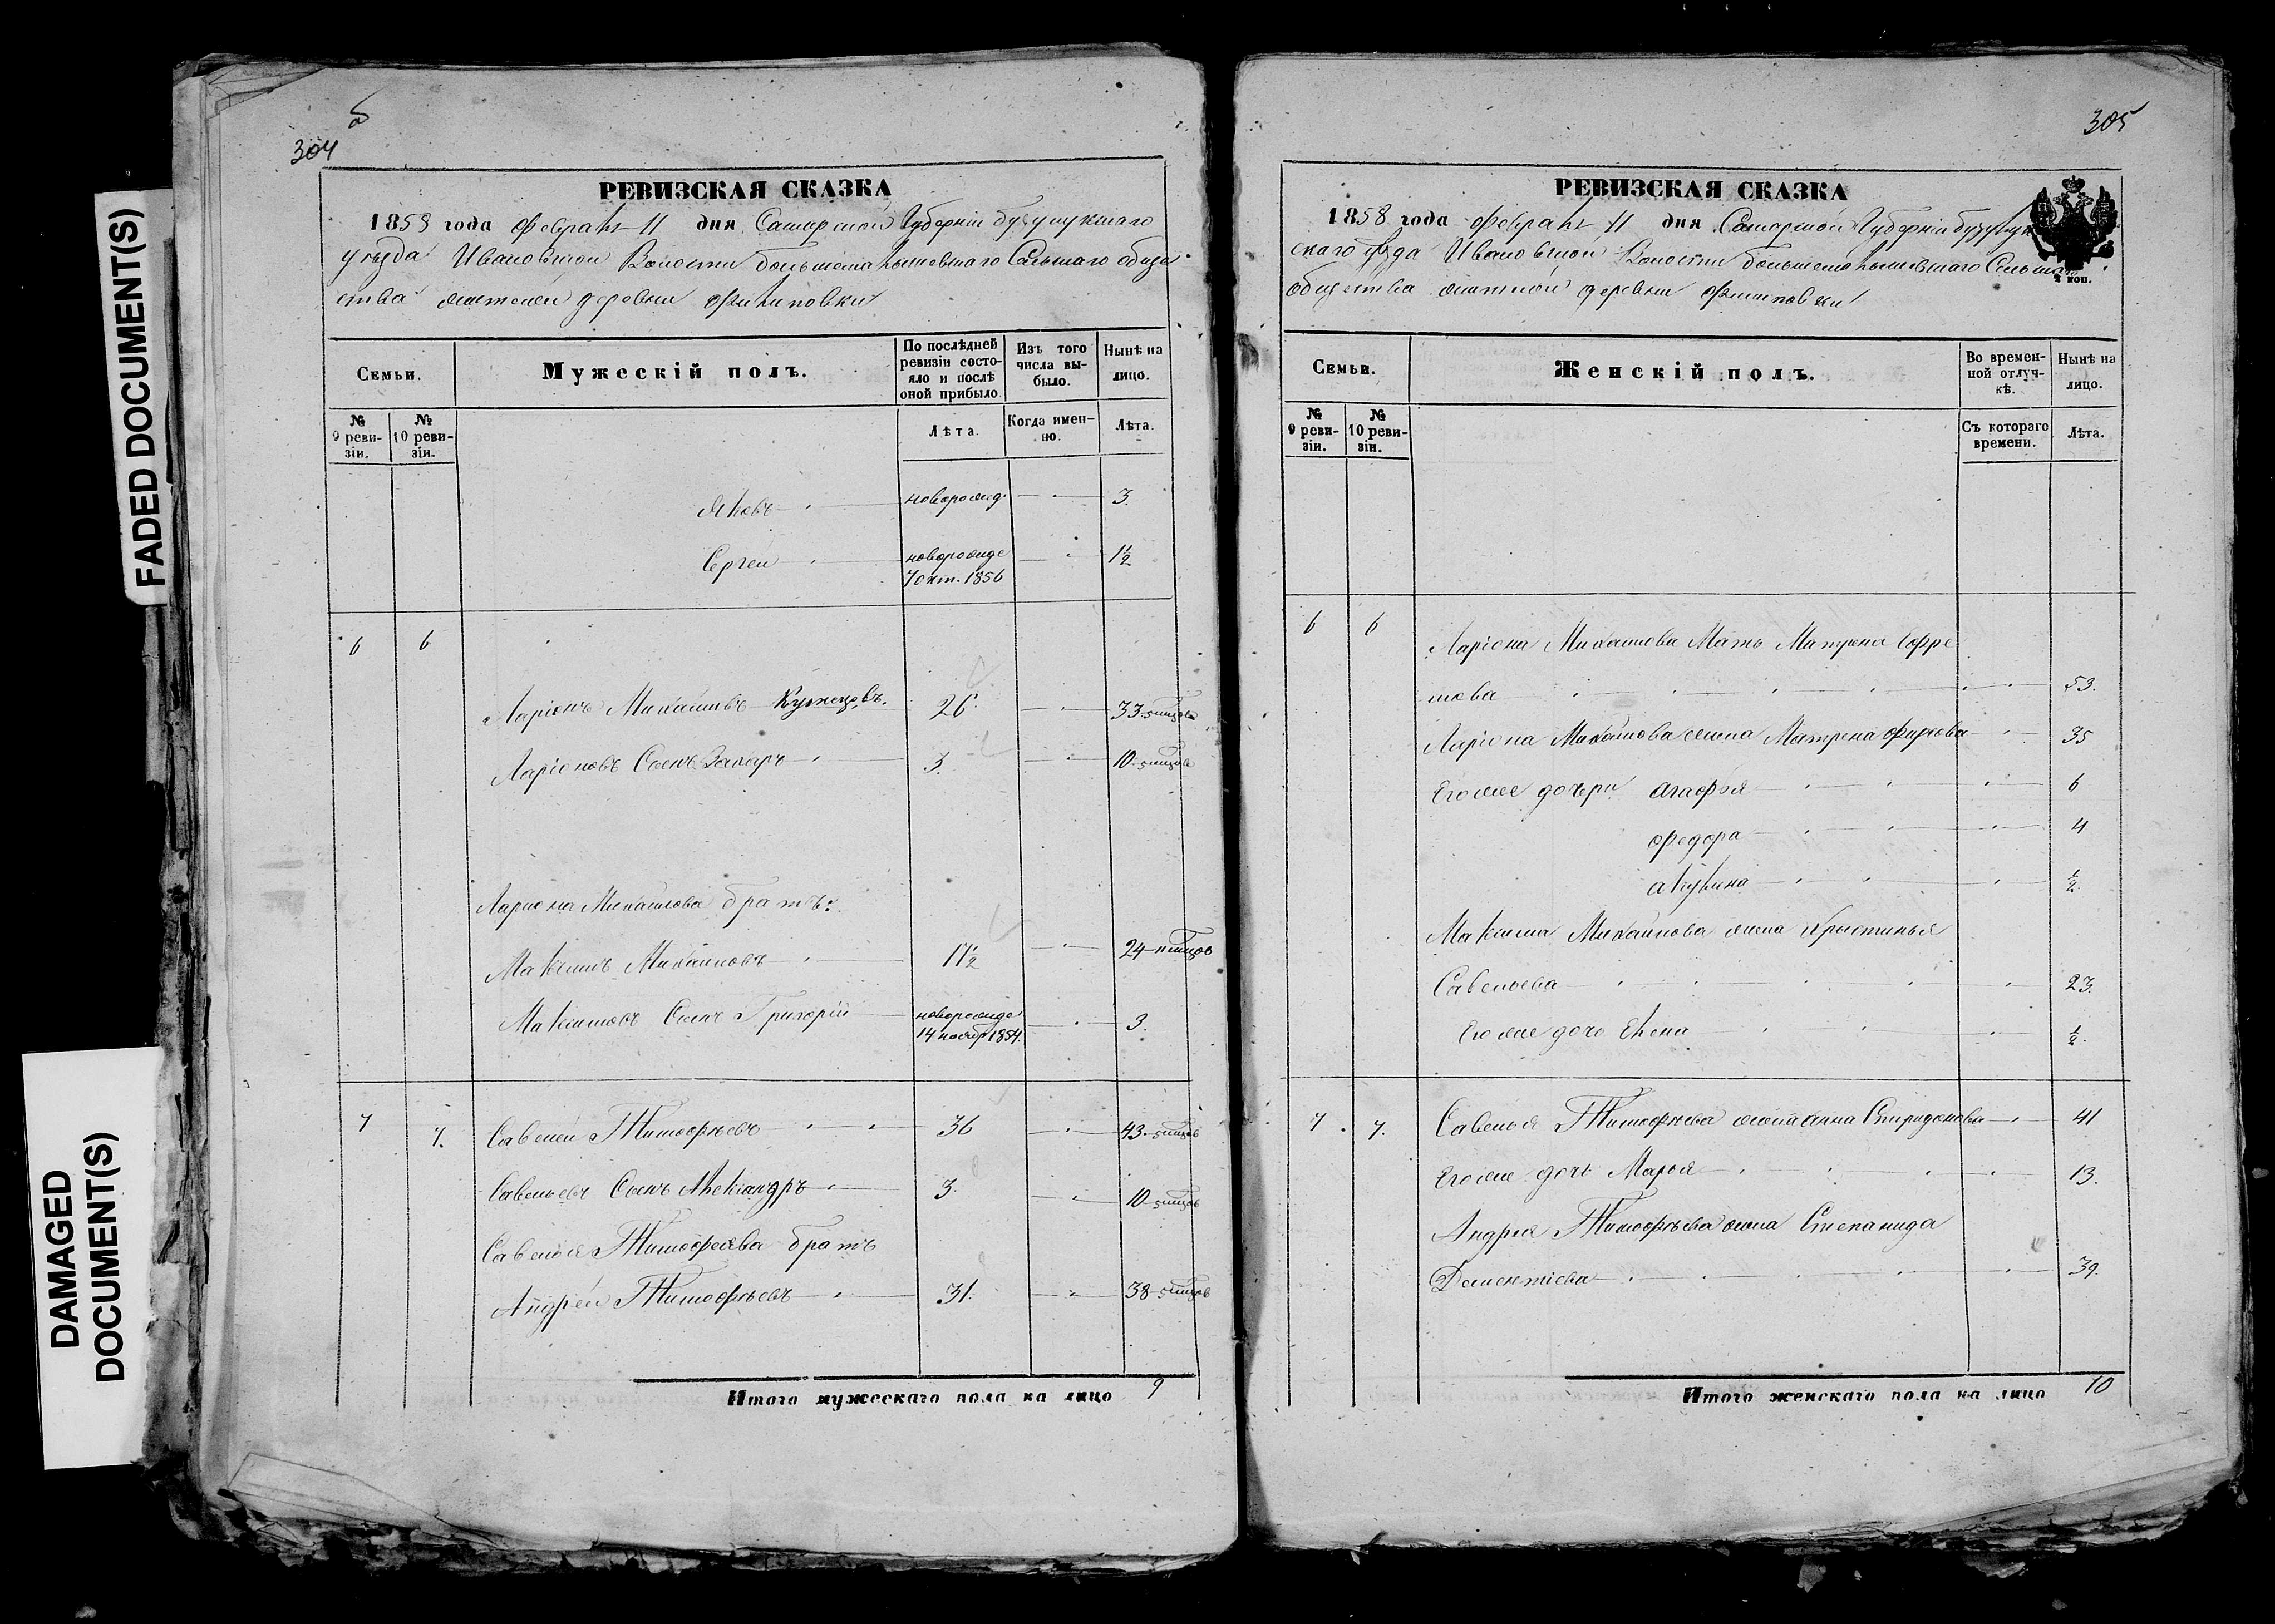 FADED DOCUMENT(S)
DAMAGED
DOCUMENT(S)
304
РЕВИЗСКАЯ СКАЗКА
1858 года февраля 11 дня Самарской Губерніи бузулукскаго
уезда Ивановской Волости Сельскаго обще
ства деревни Филиповки
Семьи.
Мужескій полъ.
По послѣдней ревизіи состояло и послѣ оной прибыло.
Изъ того числа выбыло.
Нынѣ на лицо.
№ 9 ревизіи.
№ 10 ревизіи.
Лѣта.
Когда именно.
Лѣта.
Яковъ новорожд. 3.
Сергей новорожде 1½
7 окт. 1856
6 6
Ларіонъ Михайловъ Кузнецовъ. 26. 33
Ларіоновъ Сынъ Захаръ 3. 10
Лариона Михайлова братъ:
Максимъ Михайловъ 17½ 24
Максимовъ Сынъ Григорій новорожде 3.
14 ноябр 1854.
7 7. Савелей Тимофеевъ 36 43
Савельевъ Сынъ Александръ 3. 10
Савелья Тимофеева братъ
Андрей Тимофеевъ 31. 38
Итого мужескаго пола на лицо 9
305
РЕВИЗСКАЯ СКАЗКА
1858 года февраля 11 дня Самарской Губерніи бузулук
скаго уезда Ивановской Волости Сельскаго
общества деревни Филиповки
2 коп.
Семьи.
Женскій полъ.
Во временной отлучкѣ.
Нынѣ на лицо.
№ 9 ревизіи.
№ 10 ревизіи.
Съ котораго времени.
Лѣта.
6 6 Ларіона Михайлова Мать Матрена Ефре
мова 53.
Ларіона Михайлова жена Матрена 35
Его же дочери Агафья 6
Федора 4
Акулина ½.
Максима Михайлова жена Крыстинья
Савельева 23.
Его же дочь Елена ½.
7. 7. Савелья Тимофеева жена Анна Спиридонова 41
Его же дочь Марья 13.
Андрея Тимофеева жена Степанида
Дементіева 39.
Итого женскаго пола на лицо 10